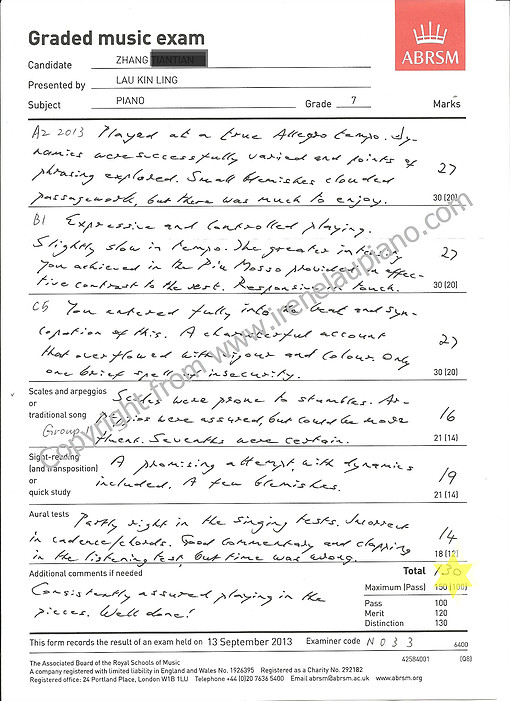 Graded music exam
ABRSM
Candidate ZHANG
Presented by LAU KIN LING
Subject PIANO Grade 7 Marks
A2 2013 Played at a true Allegro tempo. Dy-
namics were successfully varied and points of
phrasing explored. Small blemishes clouded
passagework, but there was much to enjoy.
27
30 (20)
B1 Expressive and controlled playing.
Slightly slow in tempo. The greater intensity
you achieved in the Più Mosso provided an effec-
tive contrast to the rest. Responsive in touch.
27
30 (20)
C5 You entered fully into the beat and syn-
copation of this. A characterful account
that overflowed with vigour and colour. Only
one brief spell of insecurity.
27
30 (20)
Scales and arpeggios
or
traditional song
Group 1
Scales were prone to stumbles. Ar-
peggios were assured, but could be more
fluent. Sevenths were certain.
16
21 (14)
Sight-reading
(and transposition)
or
quick study
A promising attempt, with dynamics
included. A few blemishes.
19
21 (14)
Aural tests
Partly right in the singing tests. Incorrect
in cadence/chords. Good commentary and clapping
in the listening test, but time was wrong.
14
18 (12)
Additional comments if needed
Consistently assured playing in the
pieces. Well done!
Total 130
Maximum (Pass) 150 (100)
Pass 100
Merit 120
Distinction 130
This form records the result of an exam held on 13 September 2013 Examiner code N033 6400
42584001 (Q8)
The Associated Board of the Royal Schools of Music
A company registered with limited liability in England and Wales No. 1926395 Registered as a Charity No. 292182
Registered office: 24 Portland Place, London W1B 1LU Telephone +44 (0)20 7636 5400 Email abrsm@abrsm.ac.uk www.abrsm.org
Copyright from www.irenelaupiano.com